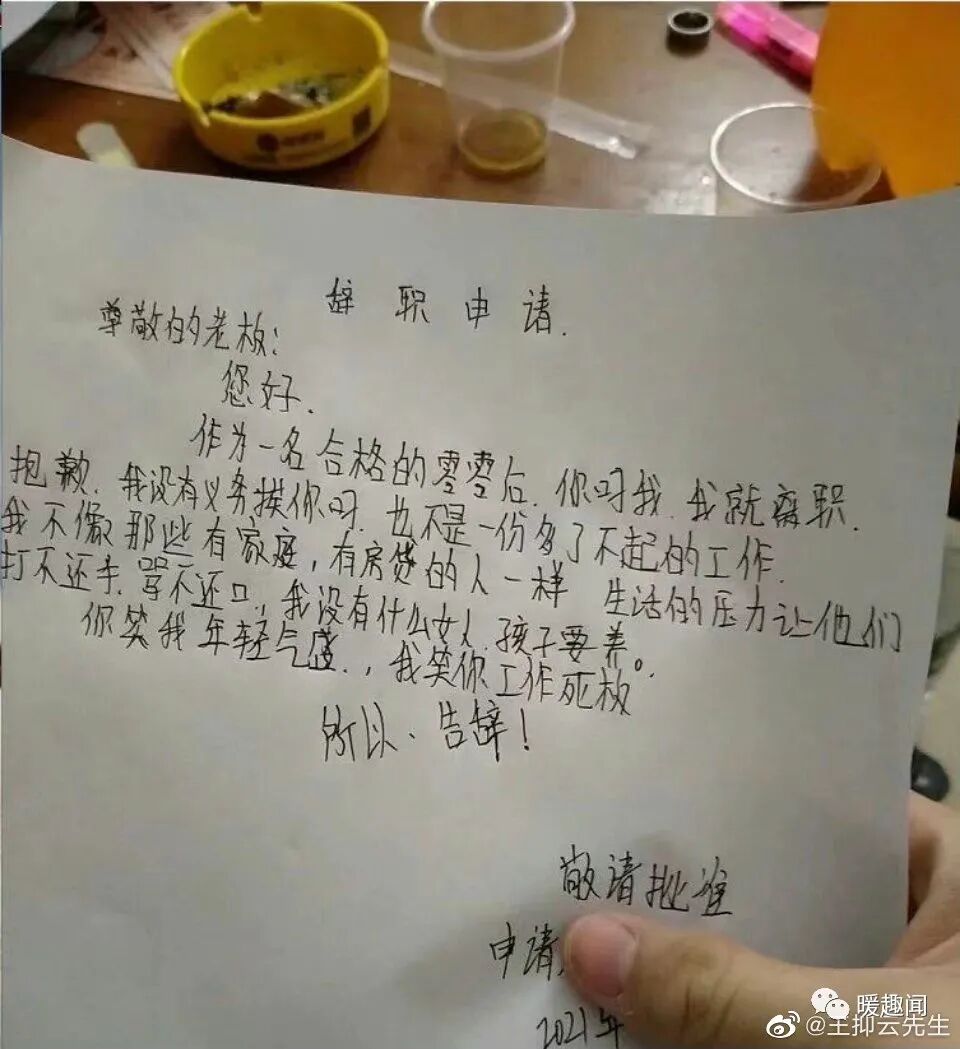 辞职申请.
尊敬的老板:
您好.
作为一名合格的零零后.你呵我.我就离职.
抱歉.我没有义务摸你呵.也不是一份多了不起的工作.
我不像那些有家庭,有房贷的人一样 生活的压力让他们
打不还手.骂不还口,我没有什么女人.孩子要养。
你笑我年轻气盛.,我笑你工作死板
所以、告辞!
敬请批准
申请
2021年
暖趣闻
@王抑云先生